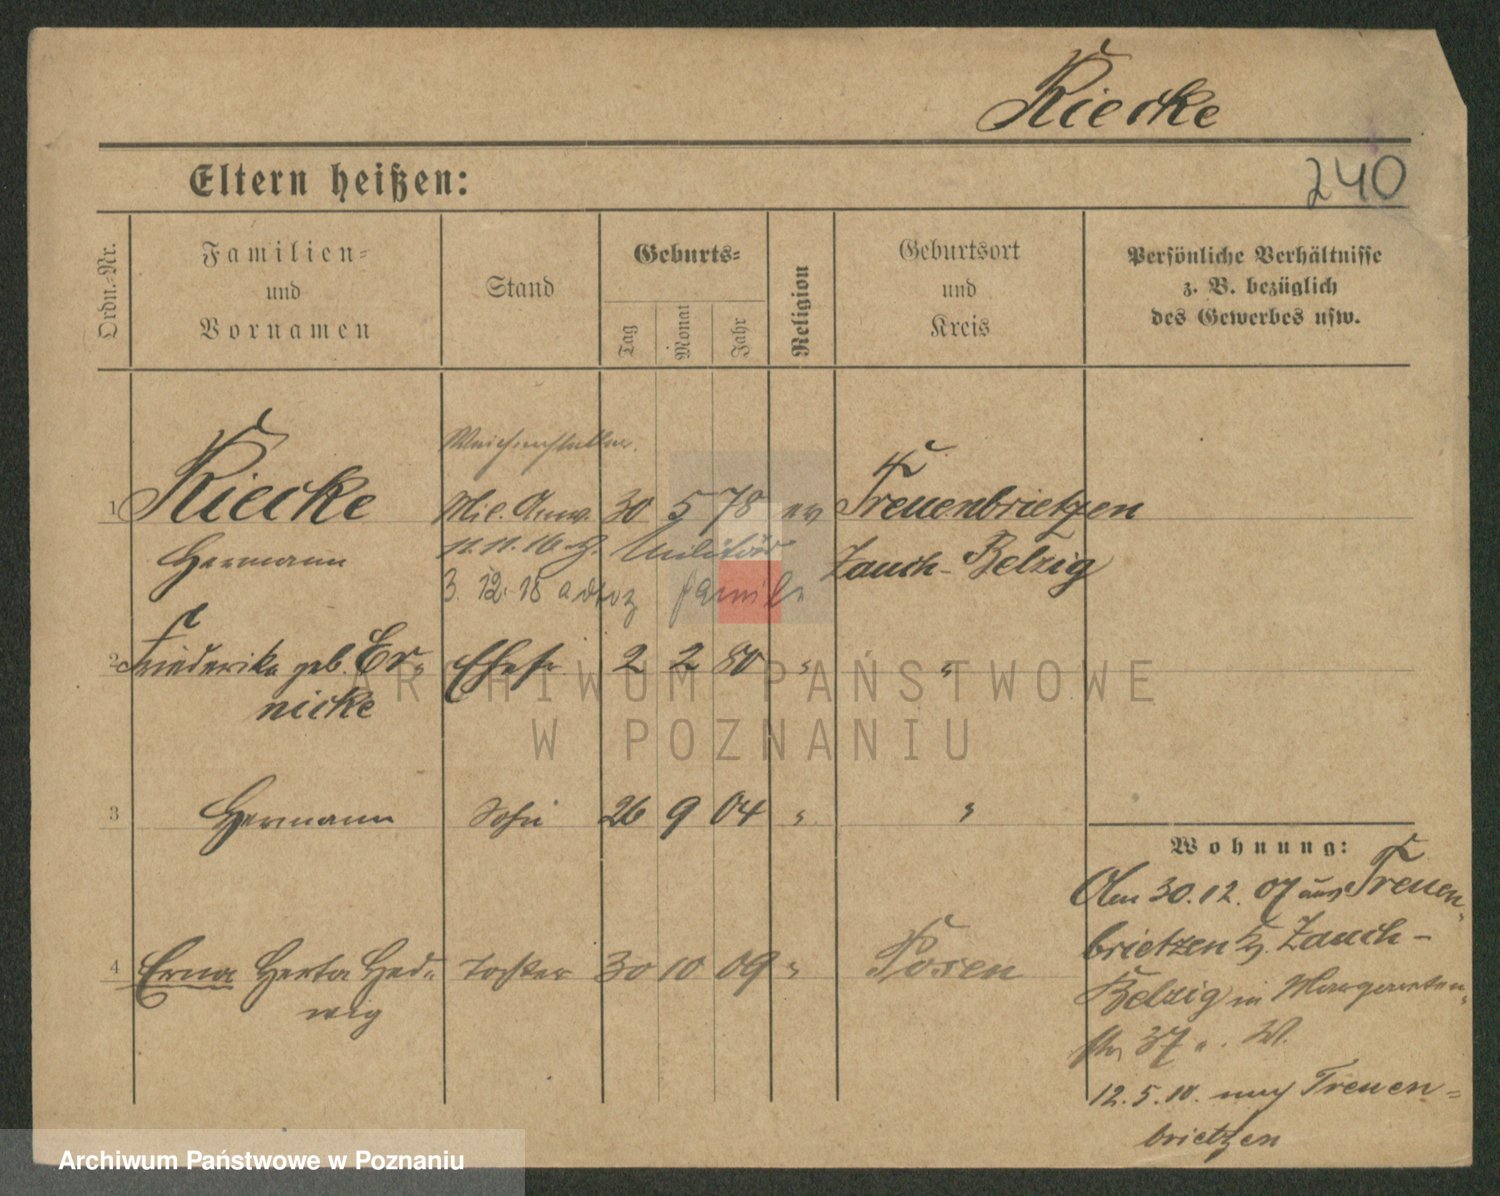 Riecke
240
Eltern heißen:
Ordn.-Nr.
Familien-
und
Vornamen
Stand
Geburts-
Tag
Monat
Jahr
Religion
Geburtsort
und
Kreis
Persönliche Verhältnisse
z. B. bezüglich
des Gewerbes usw.
Weichensteller.
1 Riecke Mil. Anw. 30 5 78 ev Treuenbrietzen
Hermann 11.11.16 Militär Zauch-Belzig
3. 12. 18 famil
2 Friederike geb. Er- Ehefr 2 2 80 " "
nicke
3 Hermann Sohn 26 9 04 " "
4 Erna Herta Hed- Tochter 30 10 09 " Posen
wig
Wohnung:
Am 30.12.07 aus Treuen-
brietzen Kr. Zauch-
Belzig in Margareten-
str 37 W.
12.5.10. nach Treuen-
brietzen
ARCHIWUM PAŃSTWOWE
W POZNANIU
Archiwum Państwowe w Poznaniu